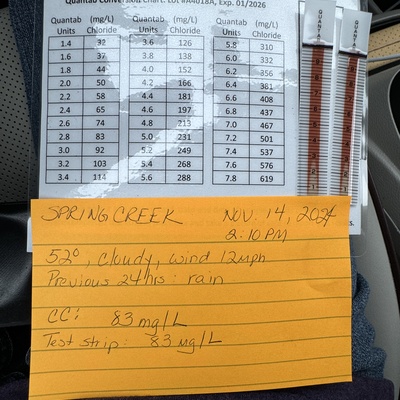 Quantab Conversion Chart: LOT #A4018A, Exp. 01/2026
Quantab Units (mg/L) Chloride Quantab Units (mg/L) Chloride Quantab Units (mg/L) Chloride
1.4 32 3.6 126 5.8 310
1.6 37 3.8 138 6.0 332
1.8 44 4.0 152 6.2 356
2.0 50 4.2 166 6.4 381
2.2 58 4.4 181 6.6 408
2.4 65 4.6 197 6.8 437
2.6 74 4.8 213 7.0 467
2.8 83 5.0 231 7.2 501
3.0 92 5.2 249 7.4 537
3.2 103 5.4 268 7.6 576
3.4 114 5.6 288 7.8 619
QUANTAB
QUANTAB
SPRING CREEK NOV. 14, 2024
2:10 PM
52°, cloudy, wind 12mph
Previous 24hrs: rain
CC: 83 mg/L
Test strip: 83 mg/L